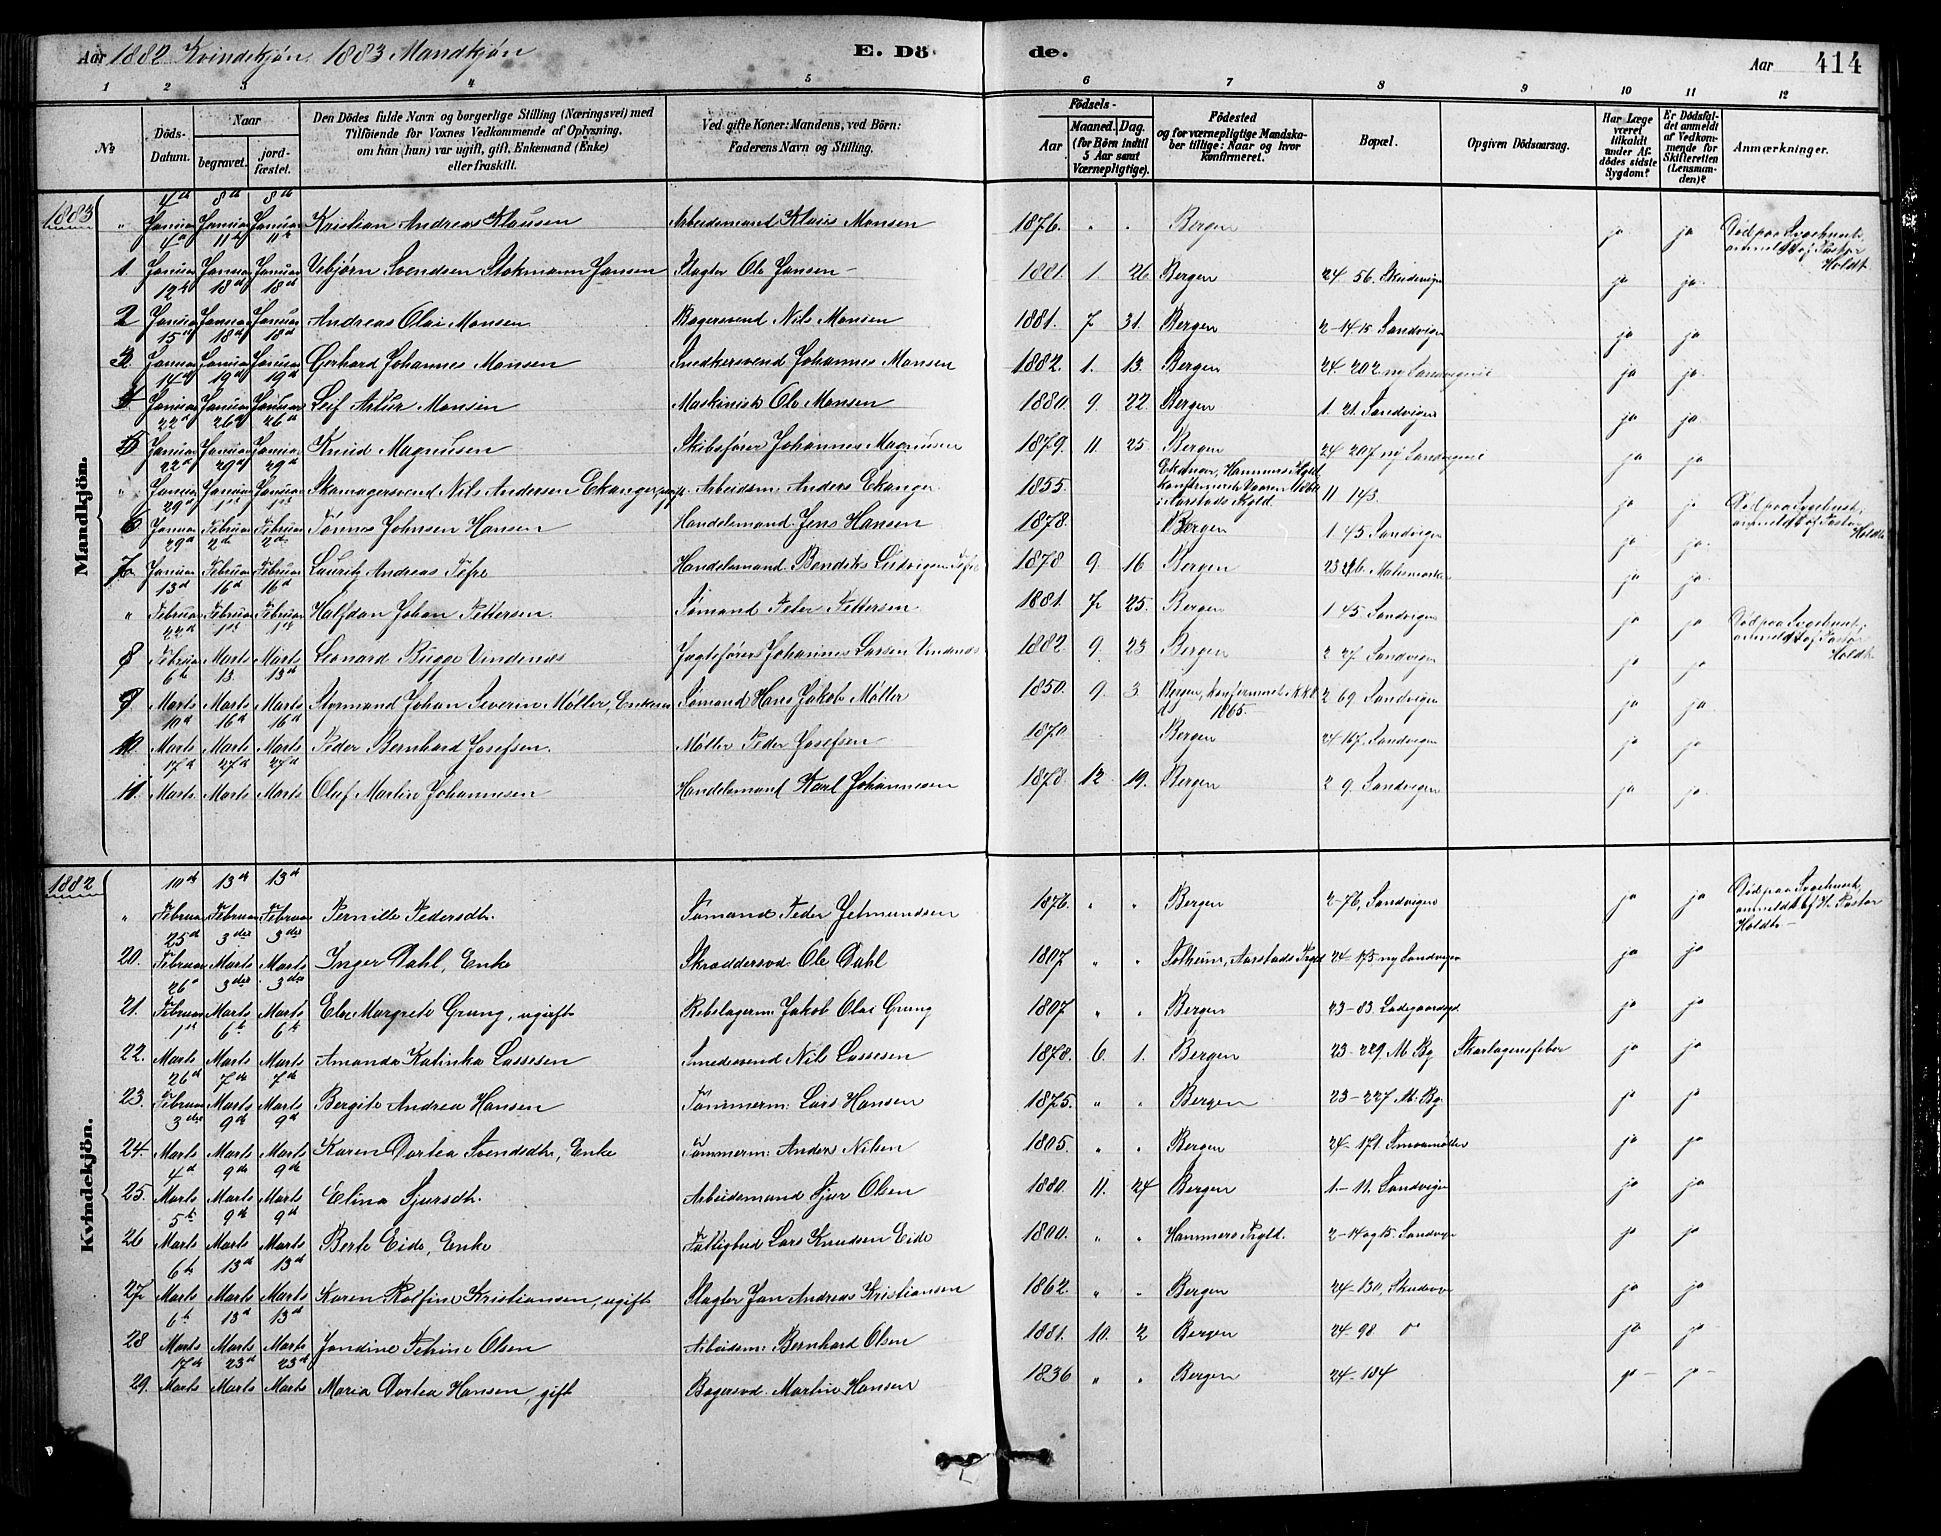 Aar 1882 Kvindekjøn. 1883 Mandkjøn E. Dö de. Aar 414
1 2 3 4 5 6 7 8 9 10 11 12
No
Döds-Datum.
Naar
begravet.
jordfæstet.
Den Dödes fulde Navn og borgerlige Stilling (Næringsvei) med
Tilföiende for Voxnes Vedkommende af Oplysning,
om han (hun) var ugift, gift, Enkemand (Enke)
eller fraskilt.
Ved gifte Koner: Mandens, ved Börn:
Faderens Navn og Stilling.
Födsels-
Aar
Maaned. Dag.
(for Börn indtil
5 Aar samt
Værnepligtige).
Födested
og for værnepligtige Mandska-
ber tillige: Naar og hvor
Konfirmeret.
Bopæl.
Opgiven Dödsaarsag.
Har Læge
været
tilkaldt
under Af-
dödes sidste
Sygdom?
Er Dödsfal-
det anmeldt
af Vedkom-
mende for
Skifteretten
(Lensman-
den)?
Anmærkninger.
Mandkjön.
1883
" 4de Januar 8de Januar 8de Januar Kristian Andreas Klausen Arbeidsmand Klaus Monsen 1876. " " Bergen ja ja Død paa Sygehuset, anmeldt af Pastor Holdt
1. 4de Januar 11te Januar 11te Januar Svendsen Stokmann Jansen Slagter Ole Jansen 1881. 1. 26 Bergen 24 56. Skudevigen ja ja
2 12te Januar 18de Januar 18de Januar Andreas Olai Monsen Bagersvend Nils Monsen 1881. 7 31. Bergen 2-14-15 Sandvigen ja ja
3. 15de Januar 18de Januar 18de Januar Gerhard Johannes Monsen Snedkersvend Johannes Monsen 1882. 1. 13. Bergen 24. 202 ny Sandvigsvei ja ja
4 14de Januar 19de Januar 19de Januar Leif Artur Monsen Maskinist Ole Monsen 1880. 9. 22. Bergen 1. 21. Sandvigen ja ja
5 22de Januar 26de Januar 26de Januar Knud Magnusen Skibsfører Johannes Magnusen 1879. 11 25 Bergen 24 207 ny Sandvigsvei ja ja
" 22de Januar 29de Januar 29de Januar Skomagersvend Nils Andersen Ekanger, ugift. Arbeidsm: Anders Ekanger 1855. Ekanger, Hammers Pgld. i Aarstads Pgld. 11 143 ja ja Død paa Sygehuset; anmeldt af Pastor Holdt
6 29de Januar 1ste Februar 1ste Februar Tønnes Johnsen Hansen Handelsmand Jens Hansen 1878. Bergen 1 45 Sandvigen ja ja
7. 29de Januar 2den Februar 2den Februar Lauritz Andreas Tefre Handelsmand Bendiks Ludvigsen Tefre 1878 9. 16 Bergen ja ja
" 13de Februar 16de Februar 16de Februar Halfdan Johan Pettersen. Sømand Peter Pettersen 1881. 7. 25. Bergen 1 45 Sandvigen ja ja Død paa Sygehuset; anmeldt af Pastor Holdt.
8 22de Februar 1ste Marts 1ste Marts Leonard Bugge Vindenæs Jagtefører Johannes Larsen Vindenæs 1882. 9. 23 Bergen 2 27 Sandvigen ja ja
9. 6te Marts 13. Marts 13de Marts Styrmand Johan Severin Møller, Enkem. Sømand Hans Jakob Møller 1850. 9. 3. Bergen, konfirmeret 1865. 2 69. Sandvigen ja ja
10. 10de Marts 16de Marts 16de Marts Peder Bernhard Josefsen. Møller Peder Josefsen 1870 Bergen 24 167. Sandvigen ja ja
11. 17de Marts 27de Marts 27de Marts Oluf Martin Johannesen Handelsmand Karl Johannesen 1878. 12 19. Bergen 2 9. Sandvigen ja ja
Kvindekjön.
1882
" 10de Februar 13de Februar 13de Februar Pernille Pedersdtr. Sømand Peder Jetmundsen 1876. " " Bergen 2-76, Sandvigen ja ja Død paa Sygehuset, anmeldt af Hr. Pastor Holdt
20. 25de Februar 3die Marts 3die Marts Inger Dahl, Enke Skræddersvd. Ole Dahl 1807 " " Solheim, Aarstads Pgld 24-175 ny Sandvigsv ja ja
21. 26de Februar 3die Marts 3die Marts Else Margrete Grung, ugift Rebslagerm: Jakob Olai Grung 1807 " " Bergen 23-83. Ladegaardsgd. ja ja
22. 1ste Marts 6te Marts 6te Marts Amanda Katinka Lassesen Smedesvend Nils Lassesen 1878. 6. 1. Bergen 23-229 M. Bg Skarlagensfeber ja ja
23. 26de Februar 7de Marts 7de Marts Bergite Andrea Hansen Tømmerm: Lars Hansen 1875. " " Bergen 23-227 M: Bg. ja ja
24. 3die Marts 9de Marts 9de Marts Karen Dortea Svendsdtr, Enke Tømmerm: Anders Nilsen 1805. " " Bergen 24-171. Smøremøllen ja ja
25. 4de Marts 9de Marts 9de Marts Elina Sjursdtr. Arbeidsmand Sjur Olsen 1880. 11. 24 Bergen 1-11. Sandvigen ja ja
26 5te Marts 9de Marts 9de Marts Berte Eide, Enke Lars Knudsen Eide 1800. " " Hammers Pgld. 2-14 og 15. Sandvigen ja ja
27. 6te Marts 13de Marts 13de Marts Karen Rolfine Kristiansen, ugift Slagter Jan Andreas Kristiansen 1862. " " Bergen 24-130, Skudevigen ja ja
28 6te Marts 13de Marts 13de Marts Jondine Petrine Olsen Arbeidsm: Bernhard Olsen 1881. 10. 2 Bergen 24-98 ja ja
29. 17de Marts 23de Marts 23de Marts Maria Dortea Hansen, gift Bagersvd. Martin Hansen 1836 " " Bergen 24-104 ja ja